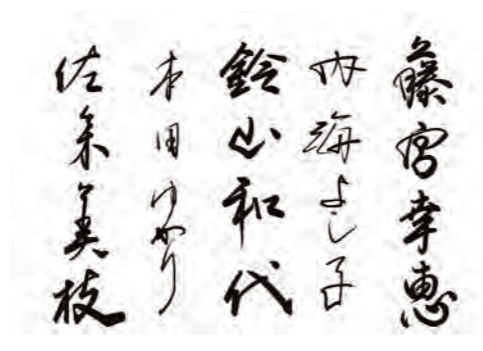 藤宮幸恵
内海よし子
鈴山和代
本田ゆかり
佐朱美枝